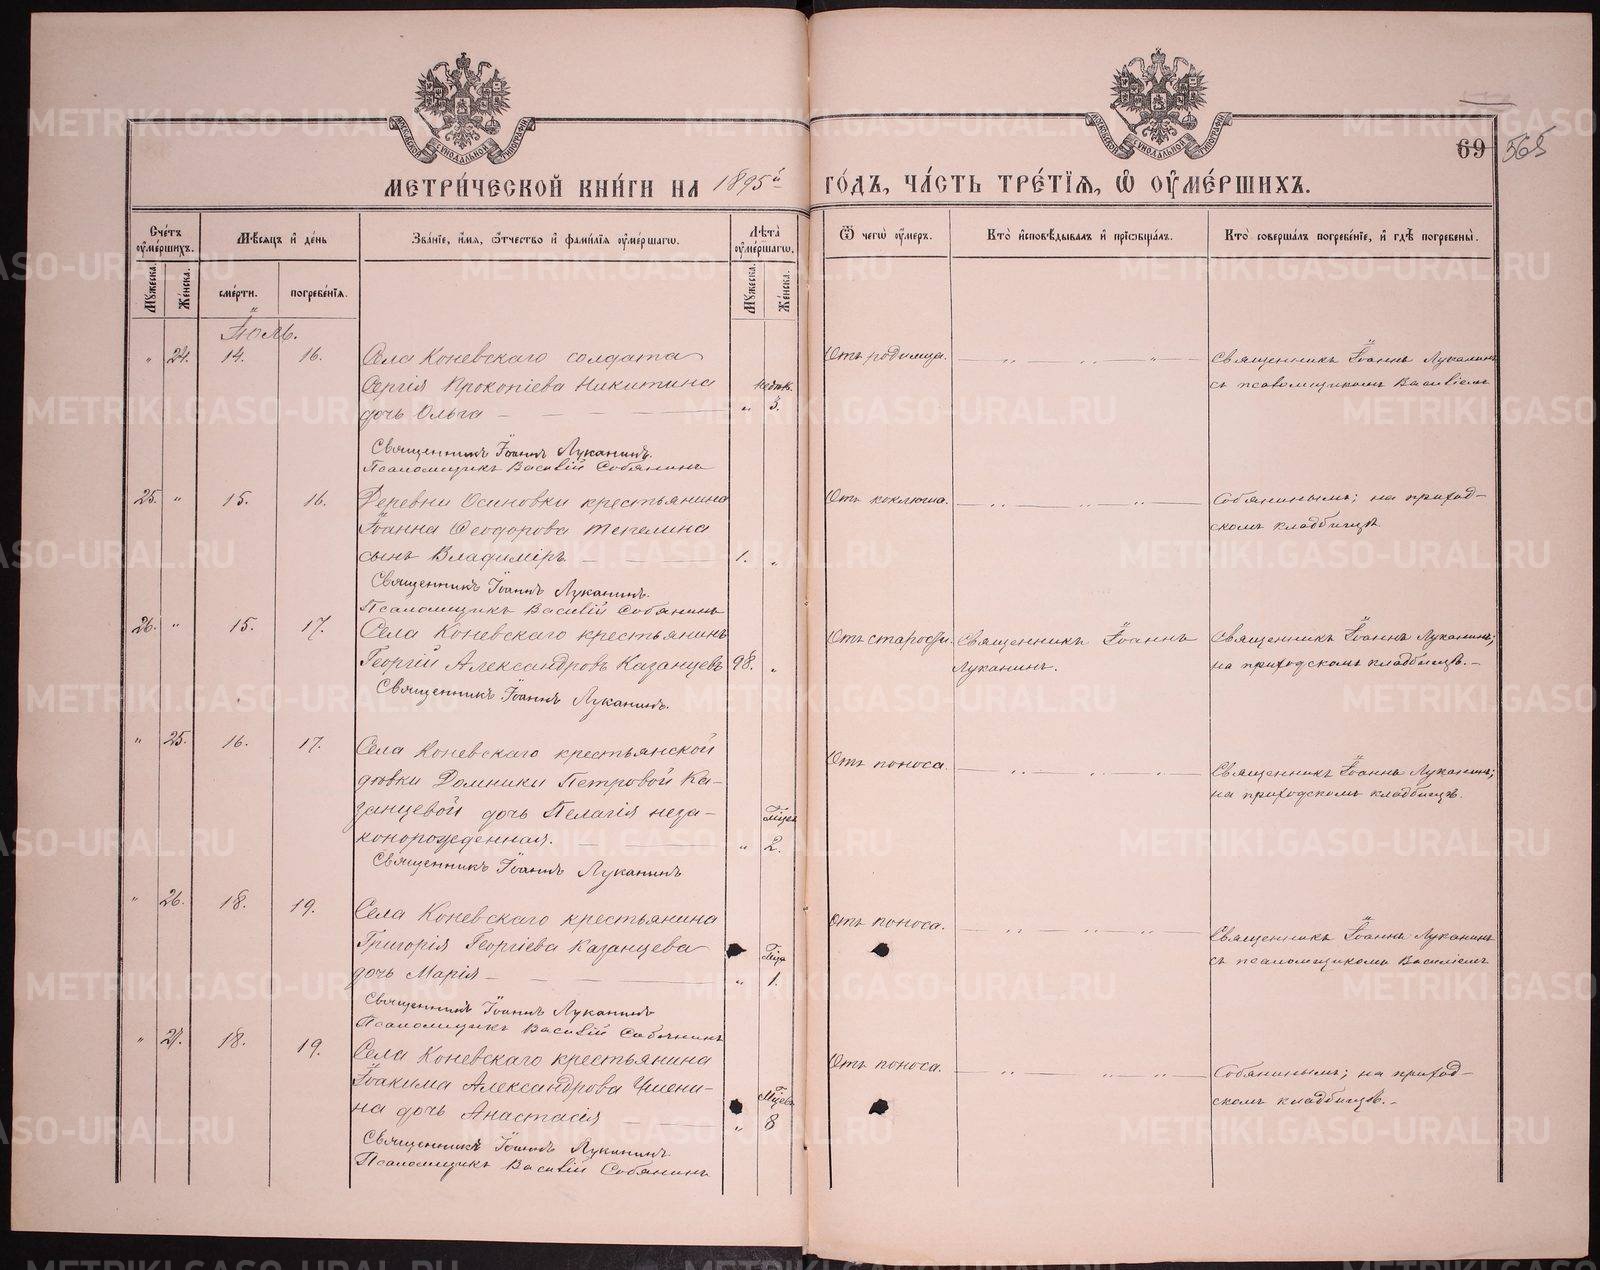 69 565
МЕТРИ́ЧЕСКОЙ КНИ́ГИ НА 1895й ГО́ДЪ, ЧА́СТЬ ТРЕ́ТІѦ, Ѡ҆ ОУ҆МЕ́РШИХЪ.
Сче́тъ оу҆ме́ршихъ.
Мꙋ́жеска.
Же́нска.
Мѣ́сѧцъ и҆ де́нь
сме́рти.
погребе́нїѧ.
Зва́нїе, и҆́мѧ, ѻ҆́тчество и҆ фами́лїѧ оу҆ме́ршагѡ.
Лѣ́та оу҆ме́ршагѡ.
Мꙋ́жеска.
Же́нска.
Ѿ чегѡ̀ оу҆́меръ.
Кто̀ и҆сповѣ́дывалъ и҆ прїѡбща́лъ.
Кто̀ соверша́лъ погребе́нїе, и҆ гдѣ̀ погребены̀.
Іюль.
" 24. 14. 16.
Села Коневскаго солдата
Сергія Прокопіева Никитина
дочь Ольга — " недѣл. 3.
Священникъ Іоаннъ Луканинъ.
Псаломщикъ Василій Собянинъ
Отъ родимца.
Священникъ Іоаннъ Луканинъ
съ псаломщикомъ Василіемъ
25. " 15. 16.
Деревни Осиновки крестьянина
Іоанна Ѳеодорова Тепелина
сынъ Владиміръ. — 1. "
Священникъ Іоаннъ Луканинъ.
Псаломщикъ Василій Собянинъ
Отъ коклюша.
Собянинымъ; на приход-
скомъ кладбищѣ
26. " 15. 17.
Села Коневскаго крестьянинъ
Георгій Александровъ Казанцевъ 98. "
Священникъ Іоаннъ Луканинъ.
Отъ старости.
Священникъ Іоаннъ
Луканинъ.
Священникъ Іоаннъ Луканинъ;
на приходскомъ кладбищѣ. —
" 25. 16. 17.
Села Коневскаго крестьянской
дѣвки Домники Петровой Ка-
занцевой дочь Пелагія неза-
конорожденная. — " мѣсяц. 2.
Священникъ Іоаннъ Луканинъ
Отъ поноса.
Священникъ Іоаннъ Луканинъ;
на приходскомъ кладбищѣ.
" 26. 18. 19.
Села Коневскаго крестьянина
Григорія Георгіева Казанцева
дочь Марія — " года 1.
Священникъ Іоаннъ Луканинъ
Псаломщикъ Василій Собянинъ
Отъ поноса.
Священникъ Іоаннъ Луканинъ
съ псаломщикомъ Василіемъ
" 27. 18. 19.
Села Коневскаго крестьянина
Іоакима Александрова
на дочь Анастасія " мѣсяцевъ 8
Священникъ Іоаннъ Луканинъ.
Псаломщикъ Василій Собянинъ
Отъ поноса.
Собянинымъ; на приход-
скомъ кладбищѣ. —
METRIKI.GASO-URAL.RU